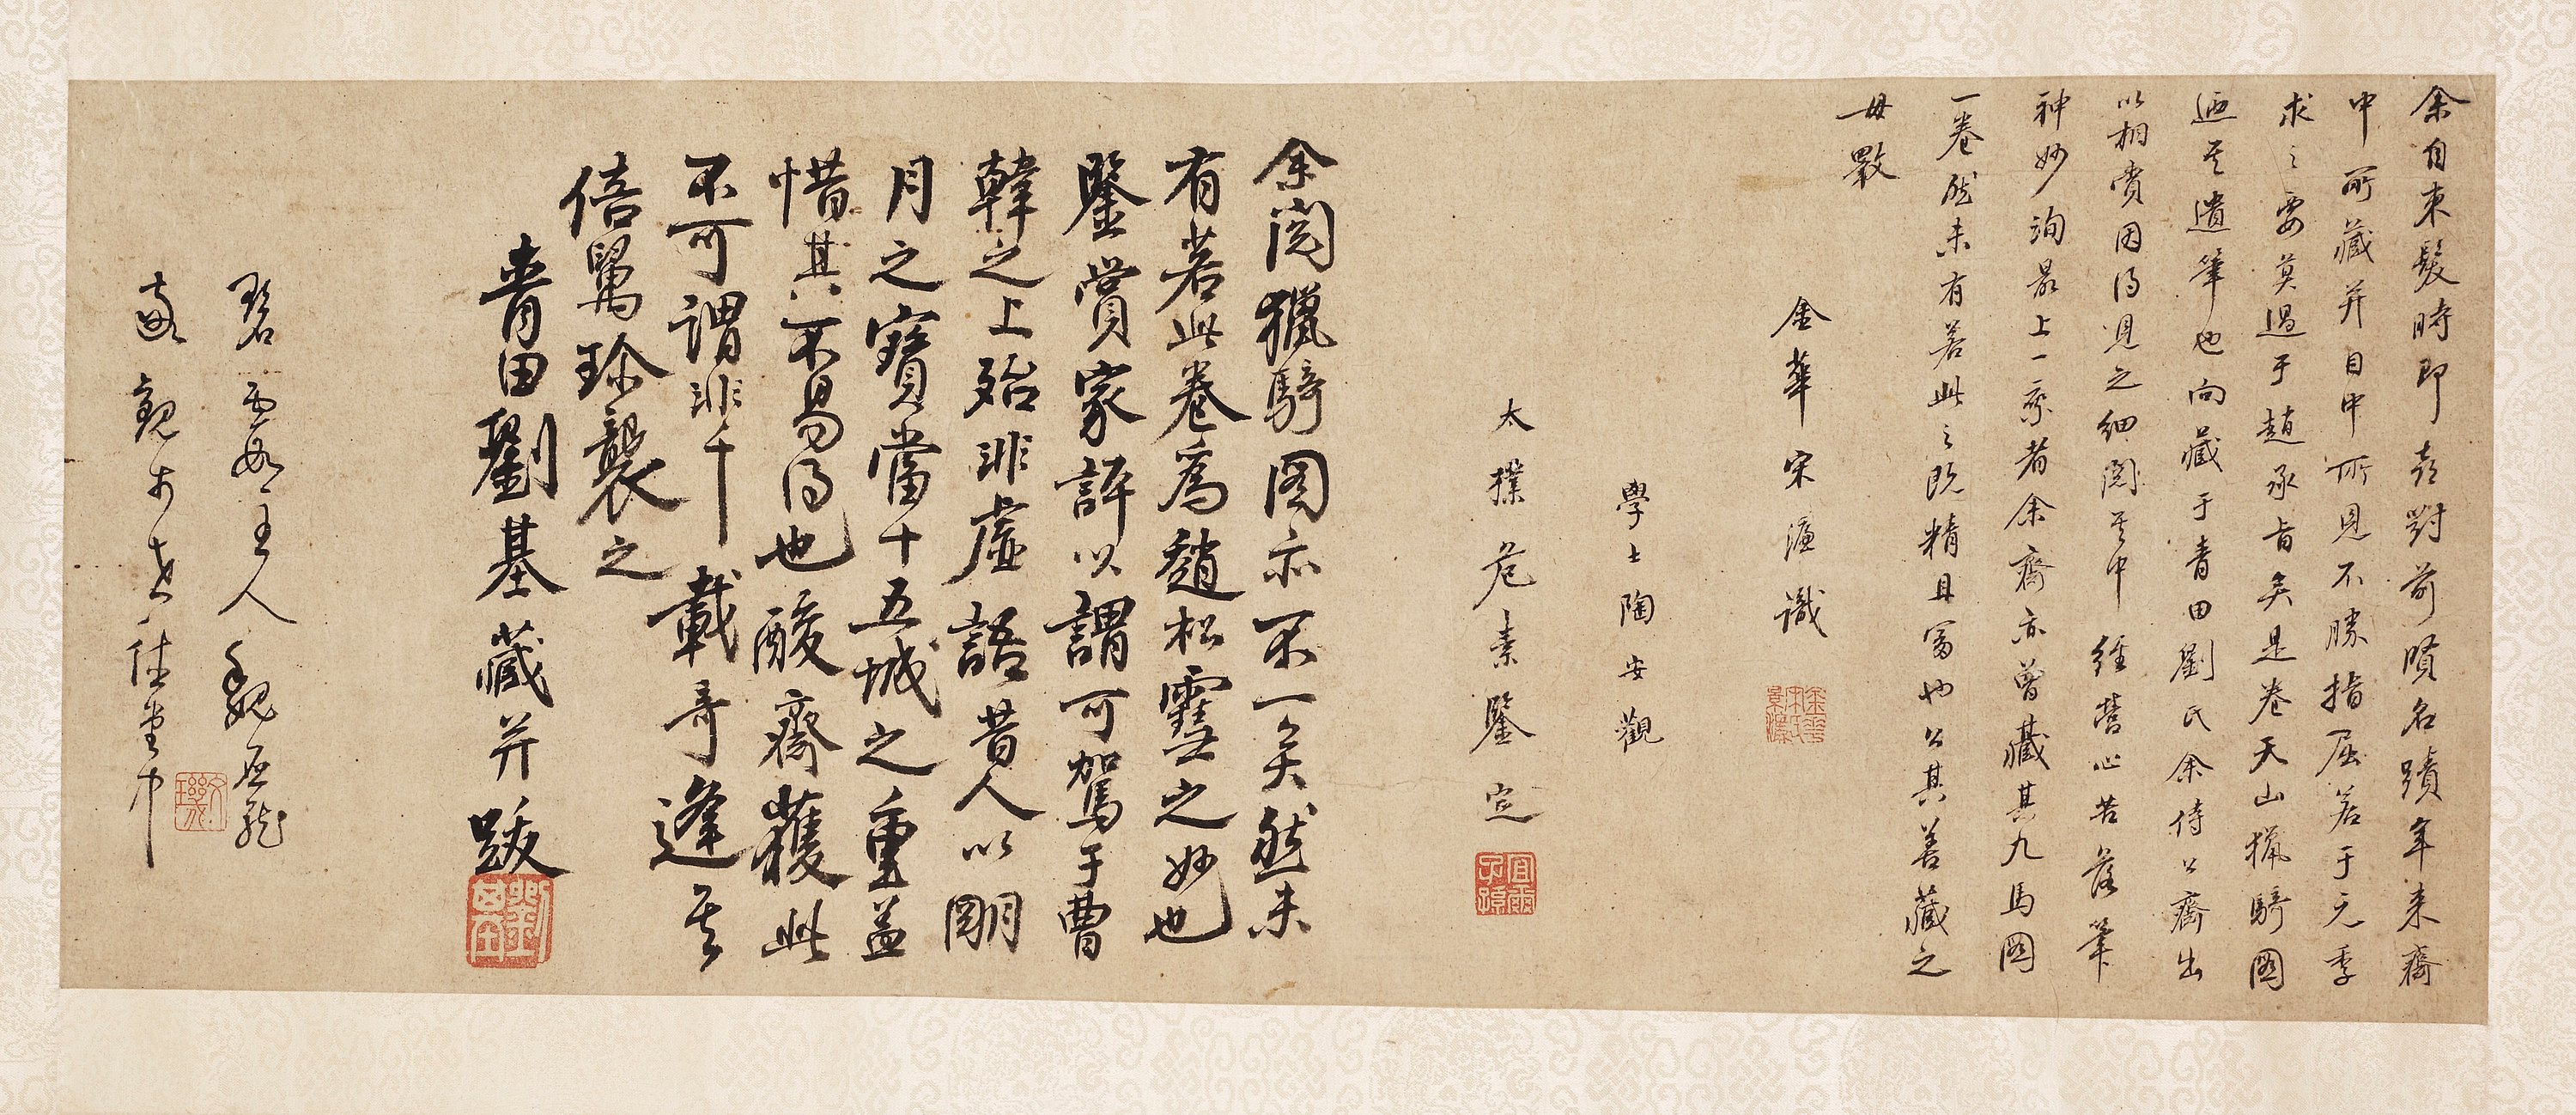 余自束髮時即喜對前賢名蹟年来齋
中所藏并目中所見不勝指屈若于元季
求之要莫過于趙承旨矣是卷天山獵騎圖
迺其遺筆也向藏于青田劉氏余侍公齋出
以相賞因得見之細閱其中經營心苦落筆
神妙洵最上一乘者余齋亦曾藏其九馬圖
一卷然未有若此之既精且富也公其善藏之
毋斁
金華宋濂識
學士陶安觀
太樸危素鑒定
余閱獵騎圖亦不一矣然未
有若此卷為趙松雪之妙也
鑒賞家評以謂可駕于曹
韓之上殆非虛語昔人以明
月之寶當十五城之重益
惜其不易得也酸齋獲此
不可謂非千載奇逢其
倍萬珍襲之
青田劉基藏并跋
碧雲主人魏
敬觀于佳堂中